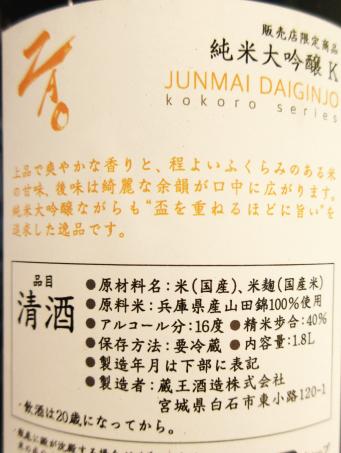 販売店限定商品
純米大吟醸 K
JUNMAI DAIGINJO
kokoro series
上品で爽やかな香りと、程よいふくらみのある米
の甘味、後味は綺麗な余韻が口中に広がります。
純米大吟醸ながらも“盃を重ねるほどに旨い”を
追求した逸品です。
品目
清酒
●原材料名:米(国産)、米麹(国産米)
●原料米:兵庫県産山田錦100%使用
●アルコール分:16度 ●精米歩合:40%
●保存方法:要冷蔵 ●内容量:1.8L
●製造年月は下部に表記
●製造者:蔵王酒造株式会社
宮城県白石市東小路120-1
・飲酒は20歳になってから。